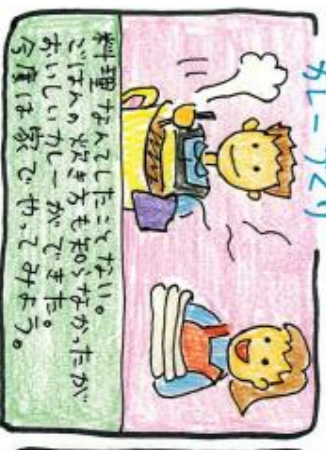 カレーづくり
料理なんてしたことない。
ごはんの炊き方も知らなかったが
おいしいカレーができた。
今度は家でやってみよう。